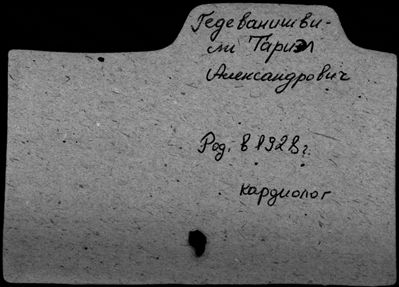 Гедеванишви-
ли Тариэл
Александрович
Род. в 1928 г.
кардиолог